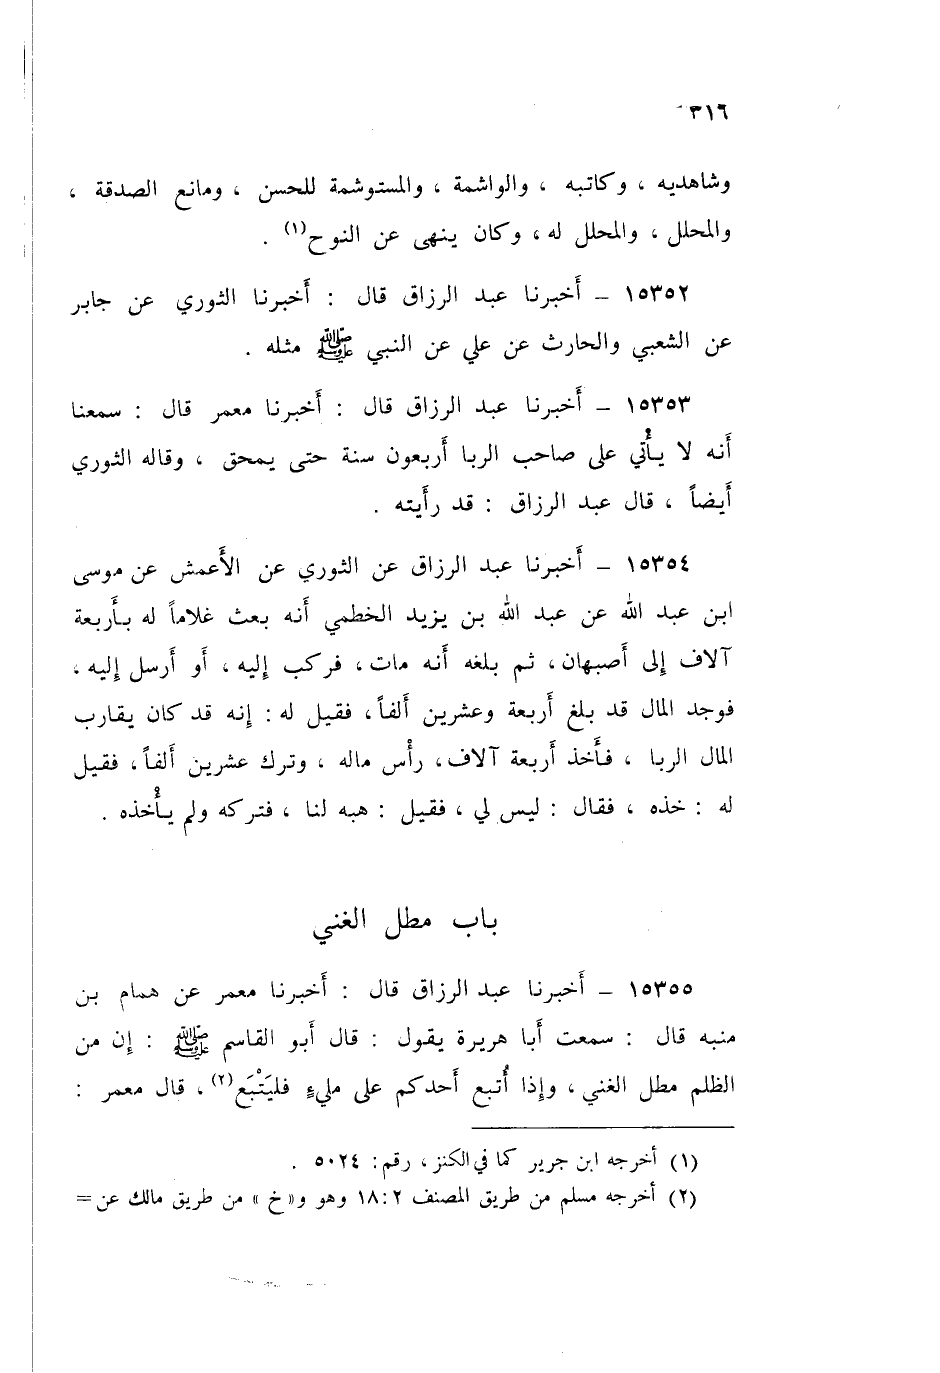 ٣١٦
وشاهديه ، وكاتبه ، والواشمة ، والمستوشمة للحسن ، ومانع الصدقة ،
والمحلل ، والمحلل له ، وكان ينهى عن النوح(١) .
١٥٣٥٢ – أخبرنا عبد الرزاق قال : أخبرنا الثوري عن جابر
عن الشعبي والحارث عن علي عن النبي ﷺ مثله .
١٥٣٥٣ – أخبرنا عبد الرزاق قال : أخبرنا معمر قال : سمعنا
أنه لا يأتي على صاحب الربا أربعون سنة حتى يمحق ، وقاله الثوري
أيضاً ، قال عبد الرزاق : قد رأيته .
١٥٣٥٤ – أخبرنا عبد الرزاق عن الثوري عن الأعمش عن موسى
ابن عبد الله عن عبد الله بن يزيد الخطمي أنه بعث غلاماً له بأربعة
آلاف إلى أصبهان، ثم بلغه أنه مات، فركب إليه ، أو أرسل إليه ،
فوجد المال قد بلغ أربعة وعشرين ألفاً، فقيل له : إنه قد كان يقارب
المال الربا ، فأخذ أربعة آلاف، رأس ماله ، وترك عشرين ألفاً، فقيل
له : خذه ، فقال : ليس لي ، فقيل : هبه لنا ، فتركه ولم يأخذه .
باب مطل الغني
١٥٣٥٥ – أخبرنا عبد الرزاق قال : أخبرنا معمر عن همام بن
منبه قال : سمعت أبا هريرة يقول : قال أبو القاسم ﷺ : إن من
الظلم مطل الغني ، وإذا أُتبع أحدكم على مليءٍ فليَتْبَع(٢) ، قال معمر :
(١) أخرجه ابن جرير كما في الكنز ، رقم: ٥٠٢٤ .
(٢) أخرجه مسلم من طريق المصنف ١٨:٢ وهو و«خ» من طريق مالك عن =